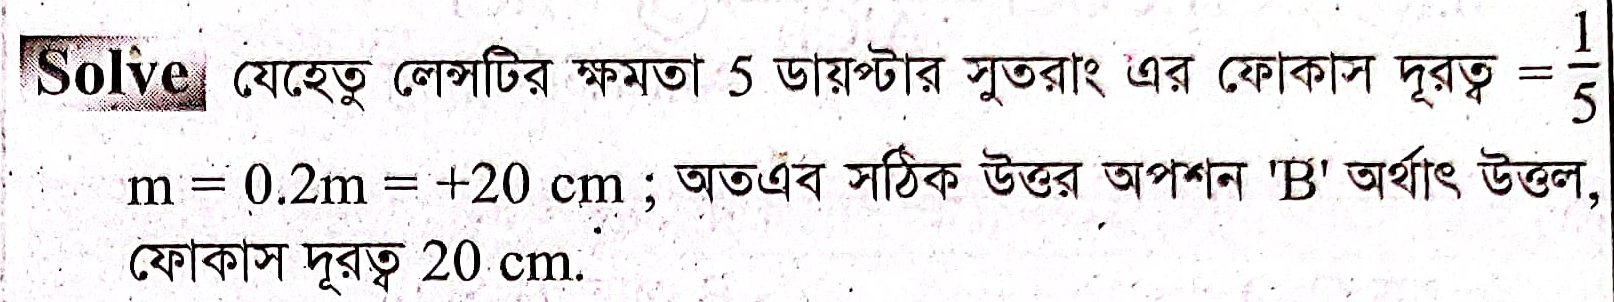 Solve যেহেতু লেন্সটির ক্ষমতা 5 ডায়প্টার সুতরাং এর ফোকাস দূরত্ব = 1/5
m = 0.2m = +20 cm ; অতএব সঠিক উত্তর অপশন 'B' অর্থাৎ উত্তল,
ফোকাস দূরত্ব 20 cm.